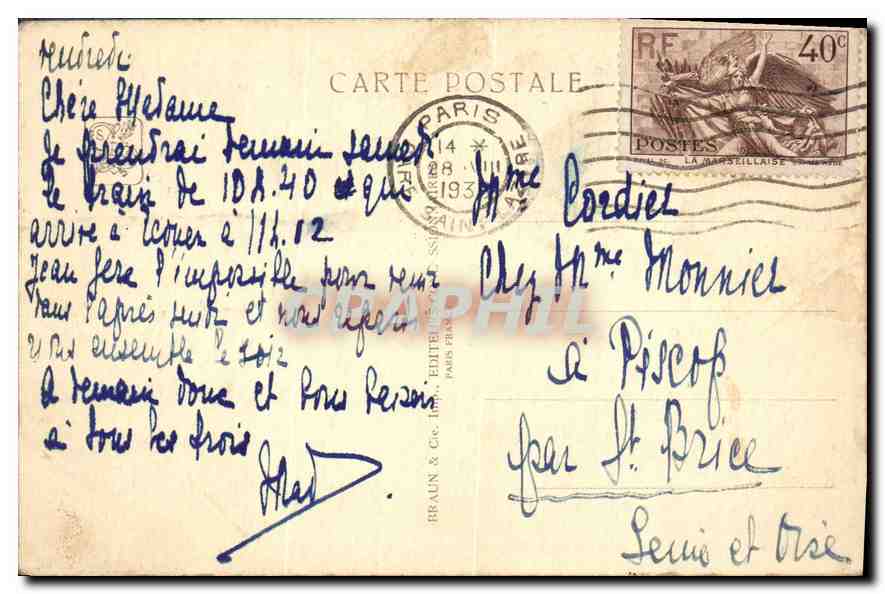 Vendredi
Chère Madame
Je prendrai demain samedi
le train de 10h.40 qui
arrive à Ecouen à 11h.02
Jean fera l'impossible pour venir
dans l'après midi et nous
ensemble le soir
A demain donc et bons baisers
à tous les trois
CARTE POSTALE
BRAUN & Cie, Imp., EDITEURS
PARIS
14
28 VIII
193
GARE
RF
40c
POSTES
LA MARSEILLAISE
Mme Cordier
Chez Mme Monnier
à Piscop
par St. Brice
Seine et Oise
CPAPHIL